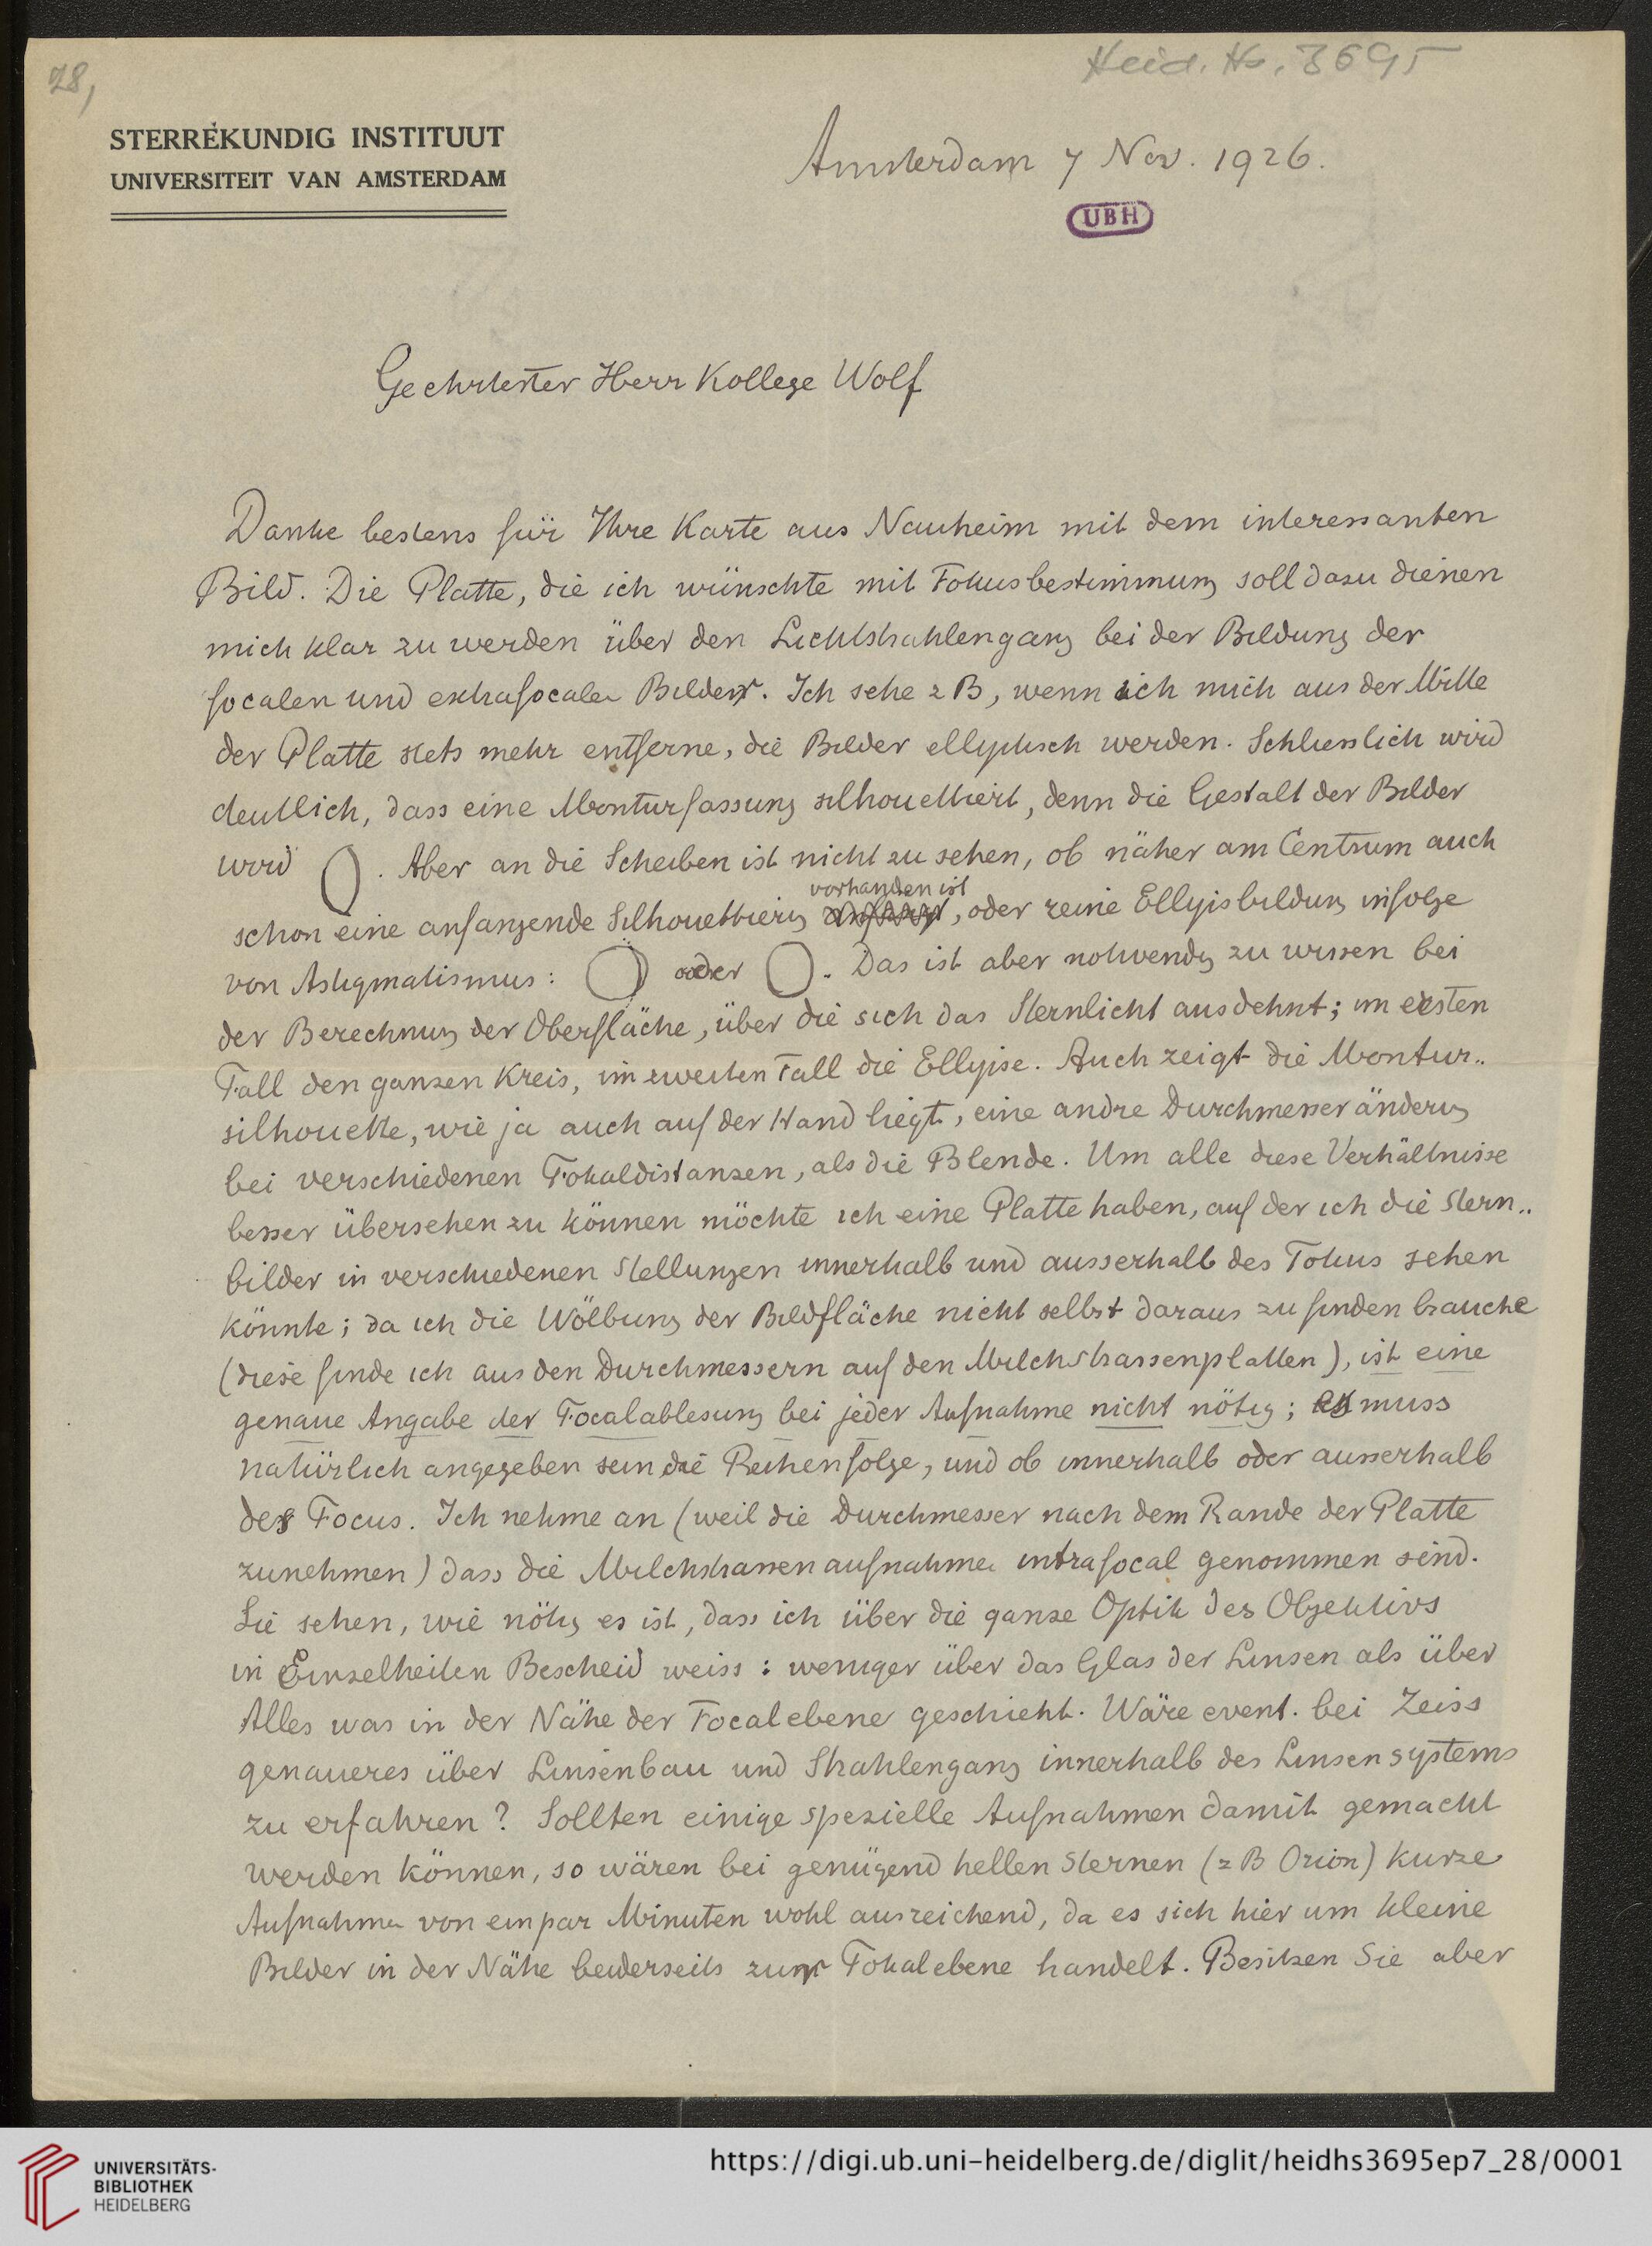 28,
Heid. Hs. 3695
STERREKUNDIG INSTITUUT
UNIVERSITEIT VAN AMSTERDAM
Amsterdam 7 Nov. 1926.
UBH
Geehrtester Herr Kollege Wolf
Danke bestens für Ihre Karte aus Nauheim mit dem interessanten
Bild. Die Platte, die ich wünschte mit Fokusbestimmung soll dazu dienen
mich klar zu werden über den Lichtstrahlengang bei der Bildung der
focalen und extrafocalen Bilder. Ich sehe z B, wenn ich mich aus der Mitte
der Platte stets mehr entferne, die Bilder elliptisch werden. Schliesslich wird
deutlich, dass eine Monturfassung silhouettiert, denn die Gestalt der Bilder
wird . Aber an die Scheiben ist nicht zu sehen, ob näher am Centrum auch
schon eine anfangende Silhouettierg vorhanden ist, oder reine Ellipsbildung infolge
von Astigmatismus: oder . Das ist aber notwendig zu wissen bei
der Berechnung der Oberfläche, über die sich das Sternlicht ausdehnt; im ersten
Fall den ganzen Kreis, im zweiten Fall die Ellipse. Auch zeigt die Montur..
silhouette, wie ja auch auf der Hand liegt, eine andre Durchmesseränderung
bei verschiedenen Fokaldistanzen, als die Blende. Um alle diese Verhältnisse
besser übersehen zu können möchte ich eine Platte haben, auf der ich die Stern..
bilder in verschiedenen Stellungen innerhalb und ausserhalb des Fokus sehen
könnte; da ich die Wölbung der Bildfläche nicht selbst daraus zu finden brauche
(diese finde ich aus den Durchmessern auf den Milchstrassenplatten), ist eine
genaue Angabe der Focalablesung bei jeder Aufnahme nicht nötig; es muss
natürlich angegeben sein die Reihenfolge, und ob innerhalb oder ausserhalb
des Focus. Ich nehme an (weil die Durchmesser nach dem Rande der Platte
zunehmen) dass die Milchstrassenaufnahmen intrafocal genommen sind.
Sie sehen, wie nötig es ist, dass ich über die ganze Optik des Objektivs
in Einzelheiten Bescheid weiss: weniger über das Glas der Linsen als über
Alles was in der Nähe der Focalebene geschieht. Wäre event. bei Zeiss
genaueres über Linsenbau und Strahlengang innerhalb des Linsensystems
zu erfahren? Sollten einige spezielle Aufnahmen damit gemacht
werden können, so wären bei genügend hellen Sternen (z B Orion) kurze
Aufnahmen von ein par Minuten wohl ausreichend, da es sich hier um kleine
Bilder in der Nähe beiderseits zur Fokalebene handelt. Besitzen Sie aber
UNIVERSITÄTS-
BIBLIOTHEK
HEIDELBERG
https://digi.ub.uni-heidelberg.de/diglit/heidhs3695ep7_28/0001